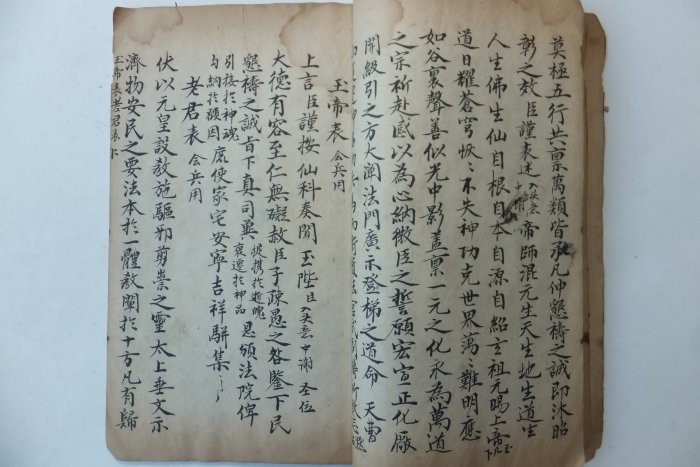 莫極五行共禀萬類皆承凡伸懇禱之誠即沐昭
彰之效臣謹表迷入矣意帝師混元生天生地生道生
人生佛生仙自根自本自源自紹玄祖元暘上帝玉几下
道日耀蒼穹恢恢不失神功克世界蕩蕩難明應
如谷裏聲善似光中影畫禀一元之化永為萬道
之宗祈赴感以為心納微臣之誓願宏宣正化廠
開級引之方大闡法門廣示登梯之道命 天曹
玉帝表 會兵用
上言臣謹按仙科奏聞玉陛 入矣意中謝 圣位
大德有容至仁無礙赦臣子疎愚之咎鑒下民
懇禱之誠旨下真司兾 提携於逝魂 褒遷於神品 恩頒法院俾
引接於神魂 勾納於願因 庶使家宅安寧吉祥駢集
老君表 会兵用
伏以元皇設教施驅邪剪祟之靈太上垂文示
濟物安民之要法本於一體教闡於十方凡有歸
玉帝表老君表